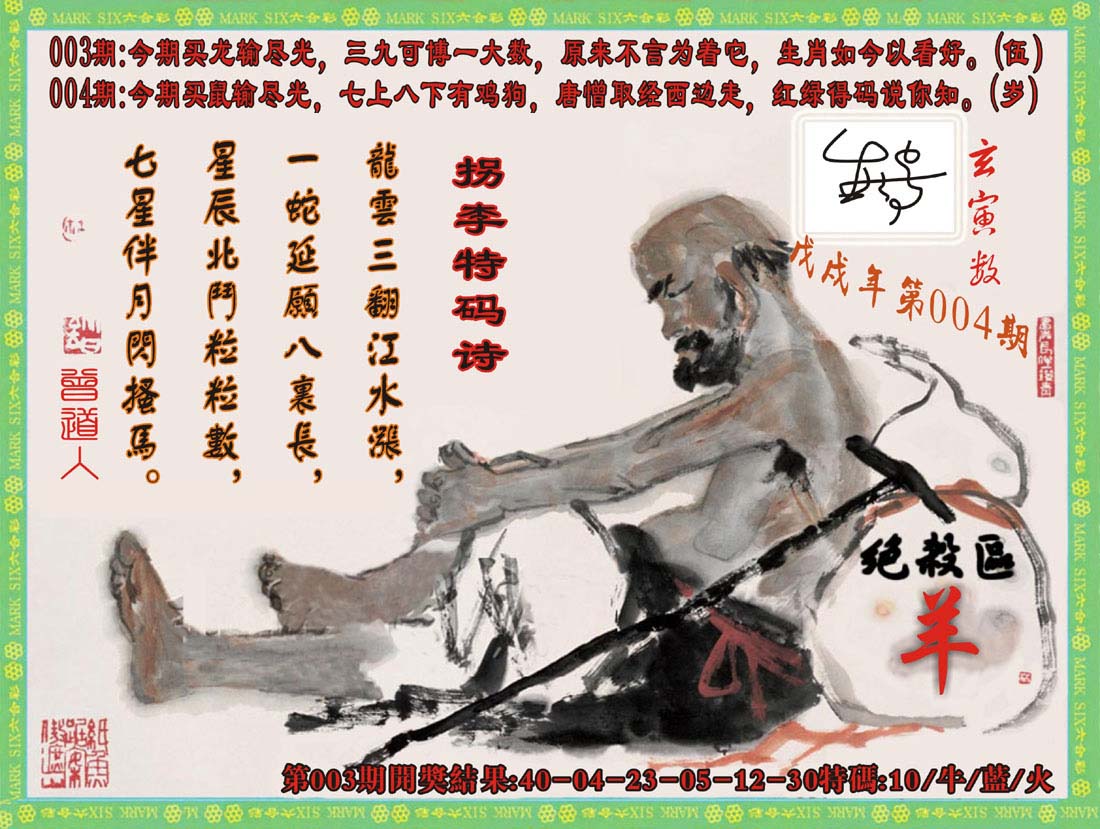 MARK SIX六合彩
003期:今期买龙输尽光，三九可博一大数，原来不言为着它，生肖如今以看好。(伍)
004期:今期买鼠输尽光，七上八下有鸡狗，唐憎取经西边走，红绿得码说你知。(岁)
玄寅数
戊戌年第004期
拐李特码诗
龍雲三翻江水漲，
一蛇延願八裏長，
星辰北鬥粒粒數，
七星伴月閃搔馬。
曾道人
绝殺區
羊
第003期開獎結果:40-04-23-05-12-30特碼:10/牛/藍/火